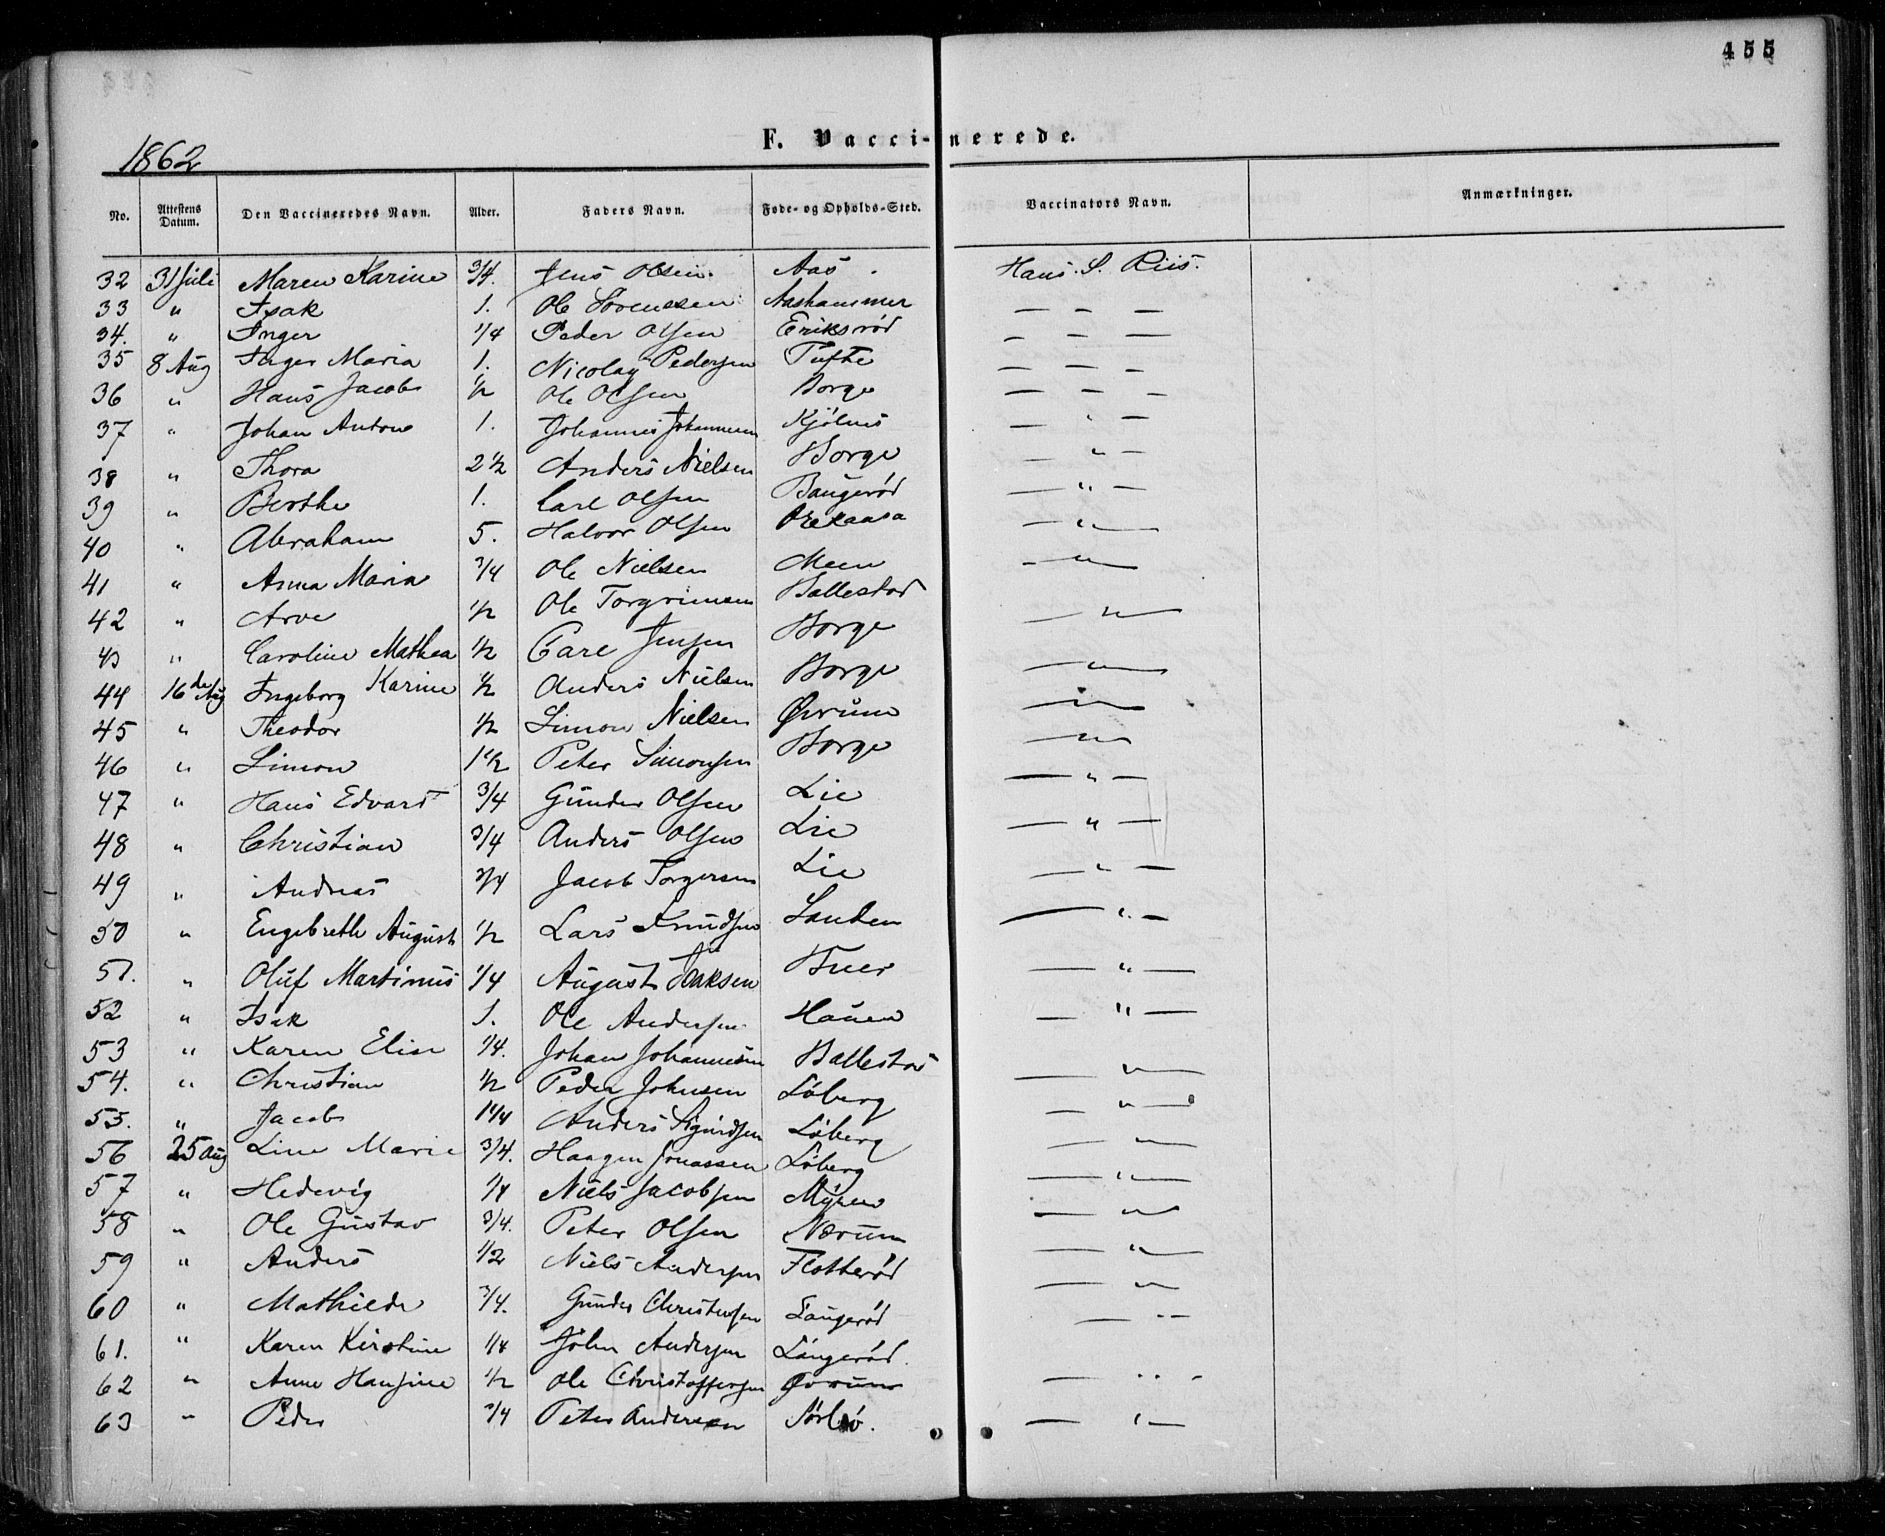 455
1862
F. Vaccinerede.
No. Attestens Datum. Den Vaccineredes Navn. Alder. Faders Navn. Føde- og Opholds-Sted. Vaccinators Navn. Anmærkninger.
32 31 Juli Maren Karine 3/4. Jens Olsen. Aas. Hans S. Riis.
33 " Isak 1. Ole Sörenssen Aashammer — — —
34. " Inger 1/4 Peder Olsen Eriksrød — — —
35 8 Aug Inger Maria 1. Nicolay Pedersen Tufte — — —
36 " Hans Jacob 1/2 Ole Olsen Borge — — —
37 " Johan Anton 1. Johannes Johannesen Kjölnes — " —
38 " Thora 2 1/2 Anders Nielsen Borge — " —
39 " Berthe 1. Carl Olsen Baugerød — " —
40 " Abraham 5. Halvor Olsen — " —
41 " Anna Maria 3/4 Ole Nielsen Meen — " —
42 " Arve 1/2 Ole Torgrimsen Ballestad — " —
43 " Caroline Mathea 1/2 Carl Jensen Borge — " —
44 16de Aug Ingeborg Karine 1/2 Anders Nielsen Borge — " —
45 " Theodor 1/2 Simon Nielsen Øvrum — " —
46 " Simon 1 1/2 Peter Simonsen Borge — " —
47 " Hans Edvard 3/4 Gunder Olsen Lie — " —
48 " Christian 3/4 Anders Olsen Lie — " —
49 " Andreas 3/4 Jacob Torgersen Lie — " —
50 " Engebreth August 1/2 Lars Knudsen Sanden — " —
51. " Oluf Martinus 1/4 August Isaksen Buer — " —
52 " Isak 1. Ole Andersen Hauen — " —
53 " Karen Elise 1/4. Johan Johannesen Ballestad — " —
54. " Christian 1/2 Peder Johnsen Löberg — " —
55. " Jacob 1 1/4 Anders Sigurdsen Löberg — " —
56 25 Aug Line Marie 3/4. Haagen Jonassen Löberg — " —
57 " Hedevig 1/4 Niels Jacobsen Myren — " —
58 " Ole Gustav 3/4. Peter Olsen Nærum — " —
59 " Anders 1/2 Niels Andersen Flotterød — " —
60 " Mathilde 3/4. Gunder Christensen Langerød — "
61. " Karen Kirstine 1/4 John Andersen Langerød.
62 " Anne Hansine 1/2 Ole Christoffersen Øvrum — " —
63 " Peder 3/4 Peter Andersen Sörbø. — " —